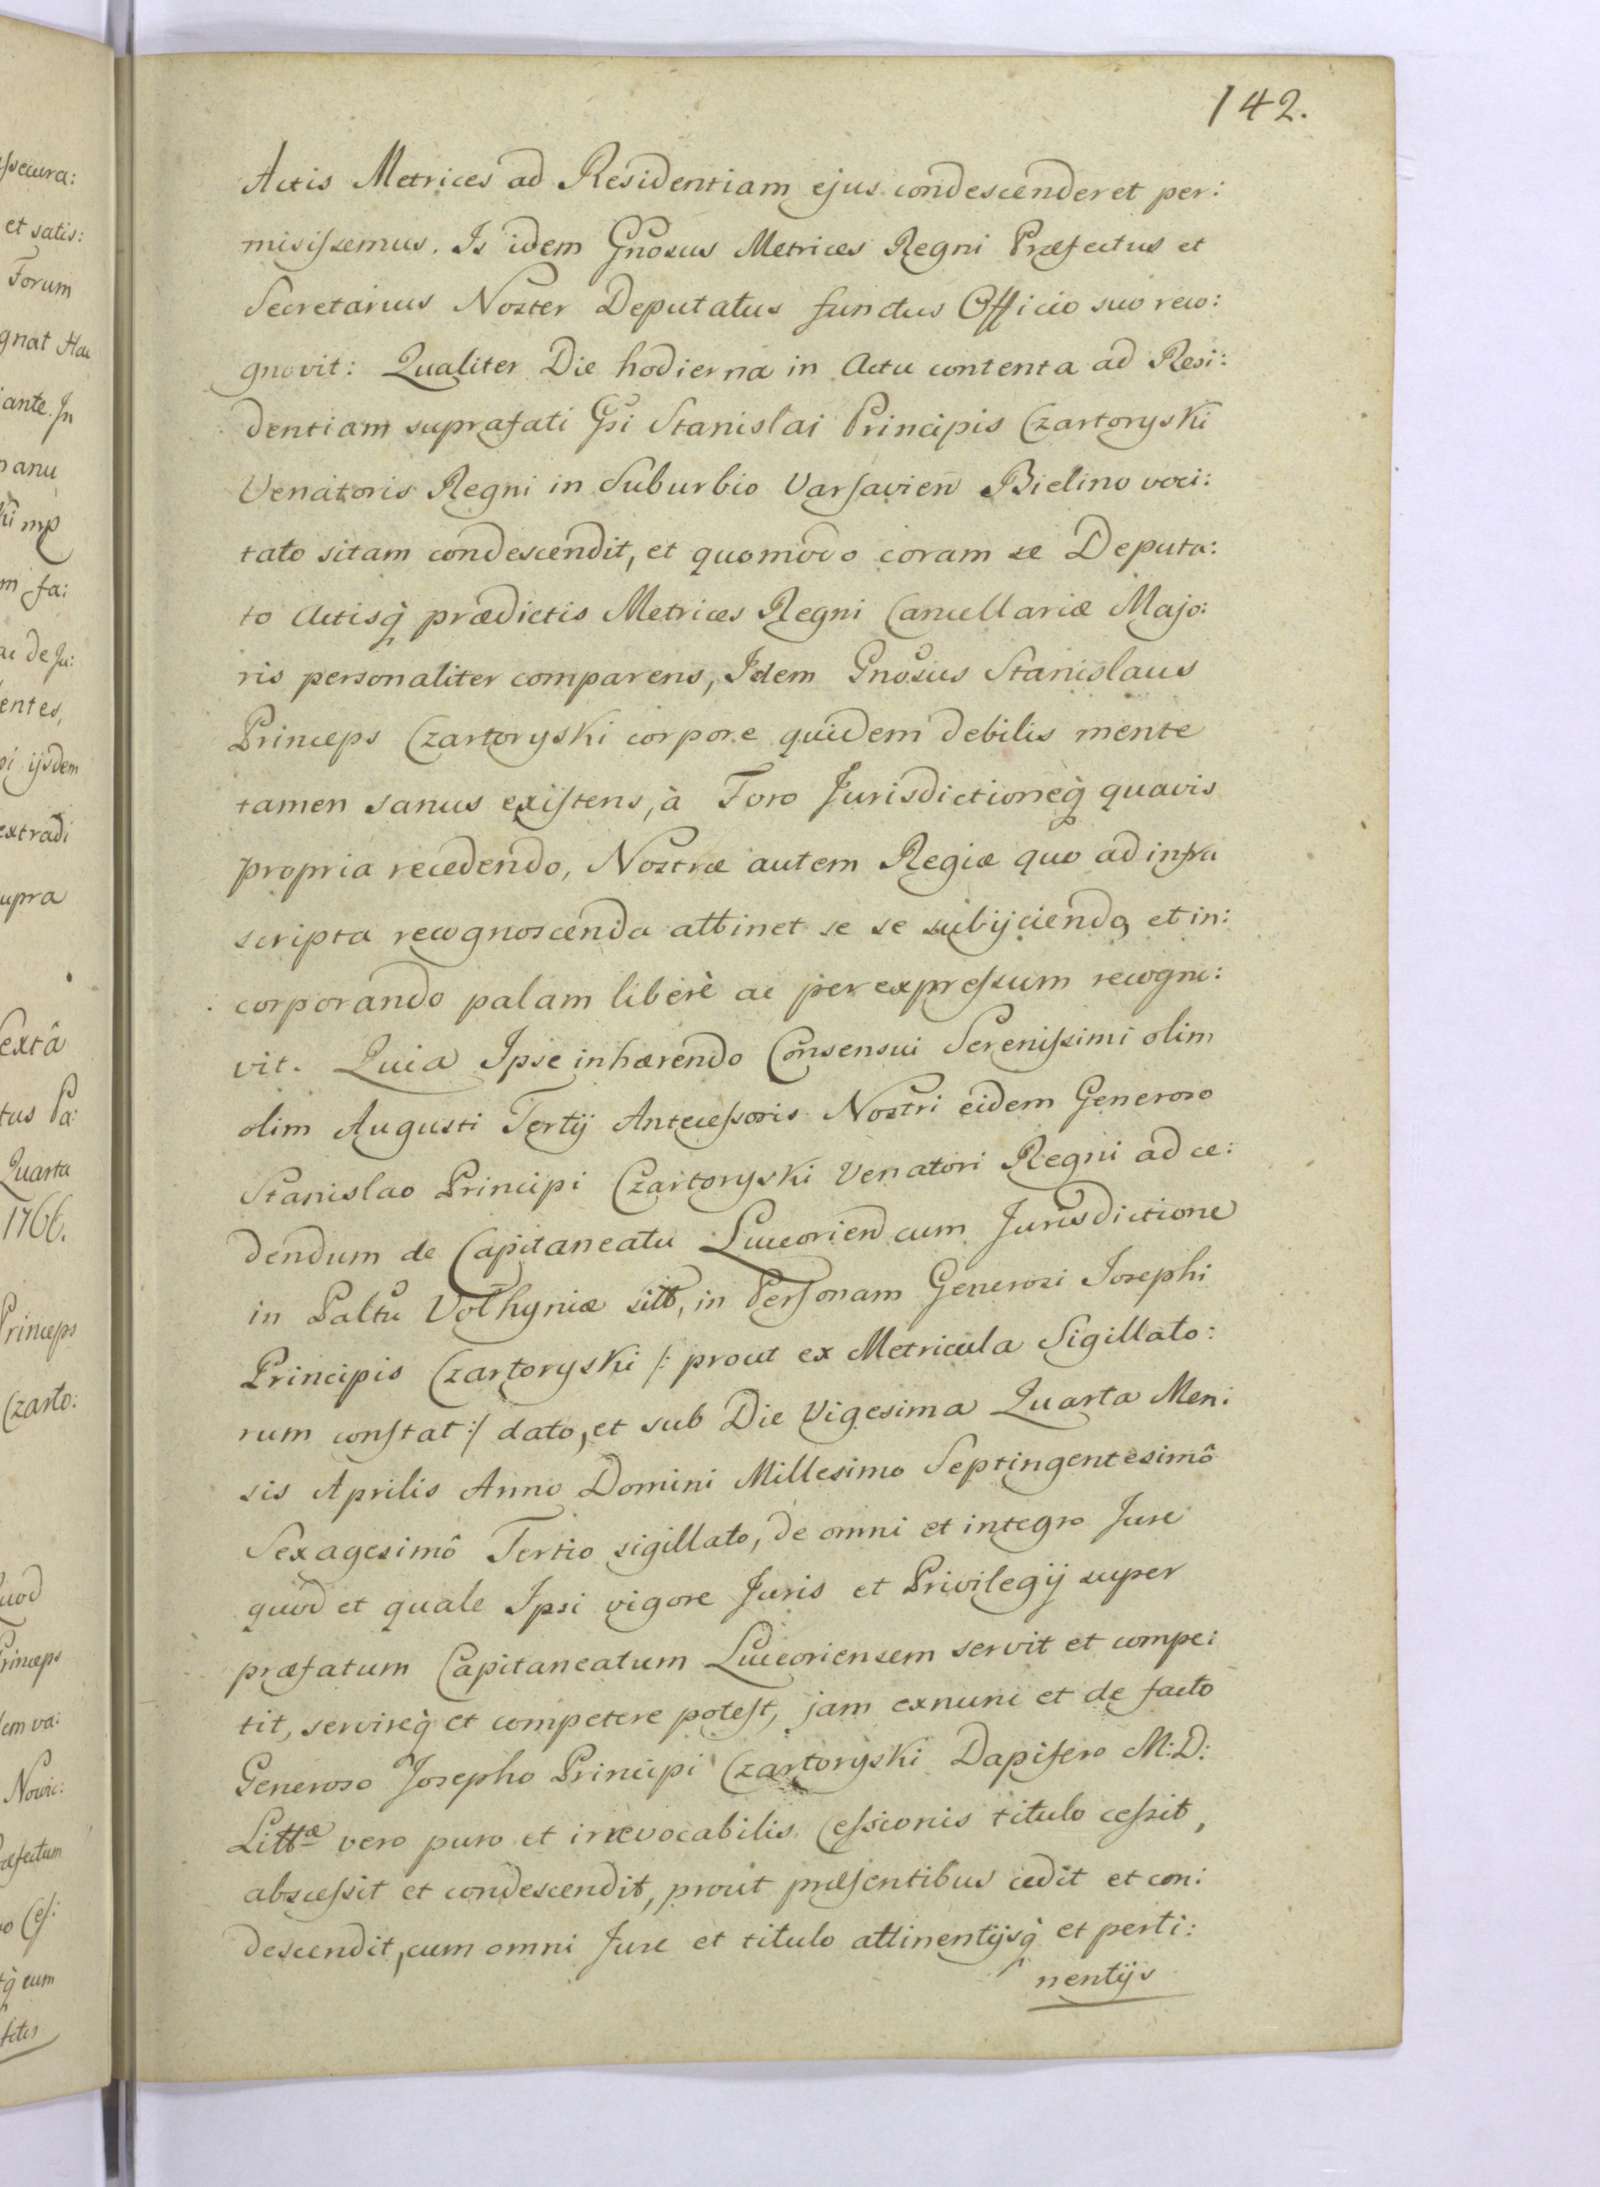 142.
Actis Metrices ad Residentiam ejus condescenderet per:
misissemus. Is idem Gnosus Metrices Regni Præfectus et
Secretarius Noster Deputatus functus Officio suo reco:
gnovit: Qualiter Die hodierna in Actu contenta ad Resi:
dentiam suprafati Gsi Stanislai Principis Czartoryski
Venatoris Regni in Suburbio Varsavien Bielino voci:
tato sitam condescendit, et quomodo coram se Deputa:
to Actisq̀ prædictis Metrices Regni Cancellariæ Majo:
ris personaliter comparens, Idem Gnosus Stanislaus
Princeps Czartoryski corpore quidem debilis mente
tamen sanus existens, à Foro Jurisdictioneq̀ quavis
propria recedendo, Nostræ autem Regiæ quo ad infra
scripta recognoscenda attinet se se subijciendo, et in:
corporando palam liberè ac per expressum recogno:
vit. Quia Ipse inhærendo Consensui Serenissimi olim
olim Augusti Tertij Antecessoris Nostri eidem Generoso
Stanislao Principi Czartoryski Venatori Regni ad ce:
dendum de Capitaneatu Luceorien cum Jurisdictione
in Paltu Volhyniæ sitt, in Personam Generosi Josephi
Principis Czartoryski /: prout ex Metricula Sigillato:
rum constat :/ dato, et sub Die Vigesima Quarta Men:
sis Aprilis Anno Domini Millesimo Septingentesimô
Sexagesimô Tertio sigillato, de omni et integro Jure
quod et quale Ipsi vigore Juris et Privilegij super
præfatum Capitaneatum Luceoriensem servit et compe:
tit, servireq̀ et competere potest, jam exnunc et de facto
Generoso Josepho Principi Czartoryski Dapifero M: D:
Littæ vero puro et irrevocabilis Cessionis titulo cessit,
abscessit et condescendit, prout præsentibus cedit et con:
descendit, cum omni Jure et titulo attinentijsq̀ et perti:
nentijs